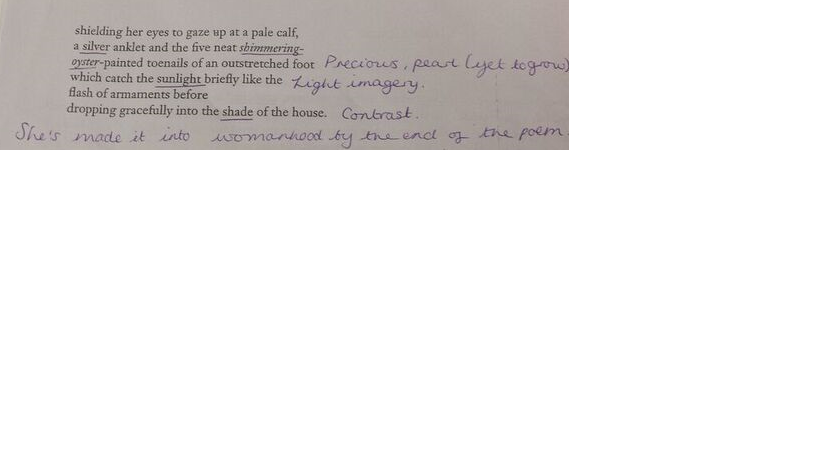 shielding her eyes to gaze up at a pale calf,
a silver anklet and the five neat shimmering-
oyster-painted toenails of an outstretched foot Precious, pearl (yet to grow)
which catch the sunlight briefly like the Light imagery.
flash of armaments before
dropping gracefully into the shade of the house. Contrast.
She's made it into womanhood by the end of the poem.